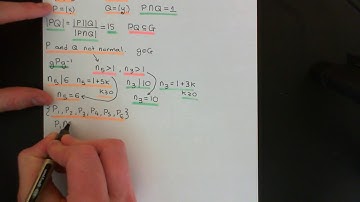 P=⟨x⟩ Q=⟨y⟩ P∩Q=1
|PQ|=|P||Q|/|P∩Q|=15 PQ≤G
P and Q not normal. g∈G
gPg⁻¹ n₅>1, n₃>1
n₅|6 n₅=1+5k k≥0 n₃|10 n₃=1+3k k≥0
n₅=6 n₃=10
{P₁,P₂,P₃,P₄,P₅,P₆}
P₁∩